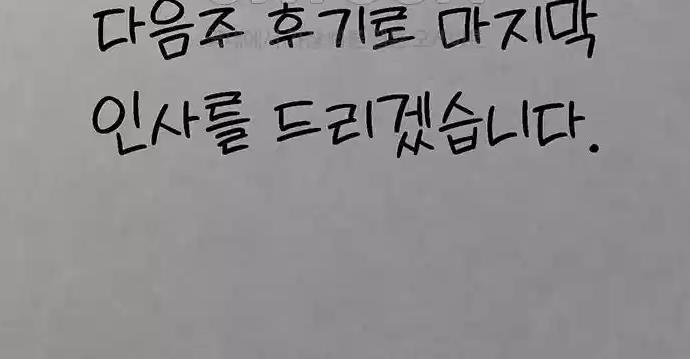 다음주 후기로 마지막
인사를 드리겠습니다.